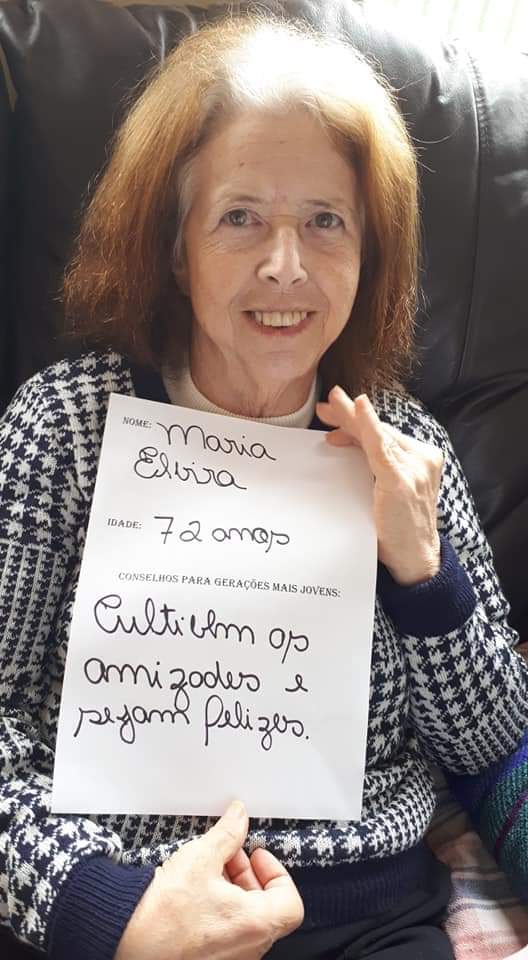 NOME: Maria
Elvira
IDADE: 72 anos
CONSELHOS PARA GERAÇÕES MAIS JOVENS:
Cultivem as
amizades e
sejam felizes.